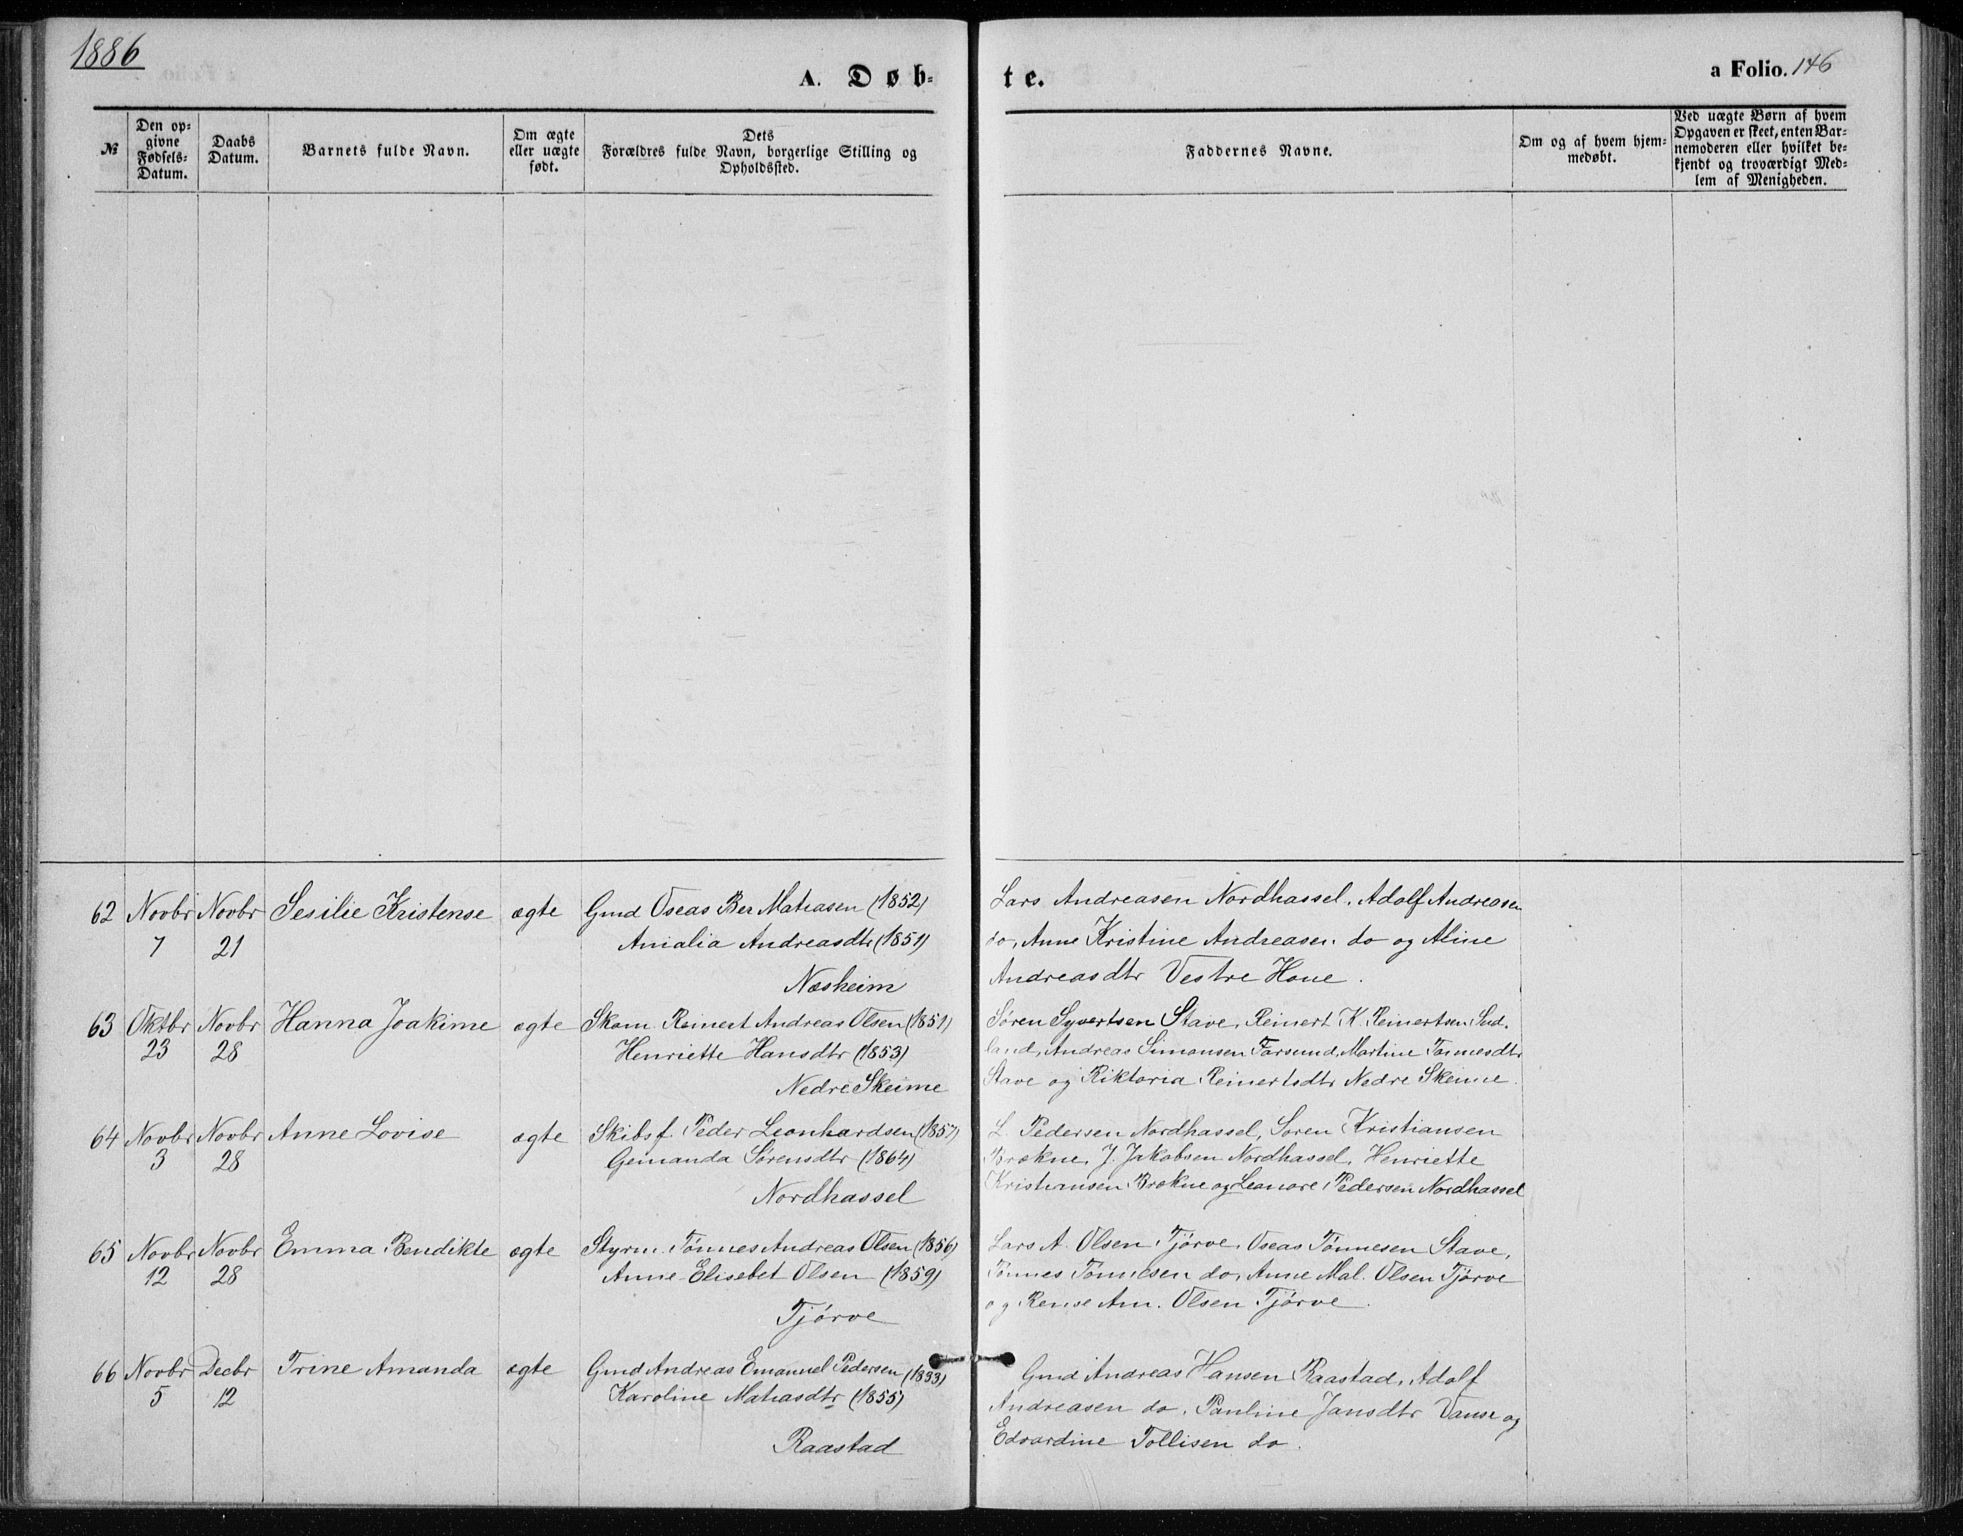 1886
A. Døb-
te.
a Folio. 146
№
Den op-
givne
Fødsels-
Datum.
Daabs
Datum.
Barnets fulde Navn.
Om ægte
eller uægte
født.
Dets
Forældres fulde Navn, borgerlige Stilling og
Opholdssted.
Faddernes Navne.
Om og af hvem hjem-
medøbt.
Ved uægte Børn af hvem
Opgaven er skeet, enten Bar-
nemoderen eller hvilket be-
kjendt og troværdigt Med-
lem af Menigheden.
62 Novbr Novbr Sesilie Kristense ægte Gmd Oseas Ber Matiasen (1852)
7 21 Amalia Andreasdtr (1851)
Næsheim
Lars Andreasen Nordhassel, Adolf Andreasen
do, Anne Kristine Andreasen do og Aline
Andreasdtr Vestre Haue.
63 Oktbr Novbr Hanna Joakime ægte Skom. Reinert Andreas Olsen (1851)
23 28 Henriette Hansdtr (1853)
Nedre Skeime
Søren Syvertsen Stave, Reinert K. Reinertsen Sud-
land, Andreas Simonsen Farsund, Martine Tønnesdtr
Stave og Viktoria Reinertsdtr Nedre Skeime.
64 Novbr Novbr Anne Lovise ægte Skibsf. Peder Leonhardsen (1857)
3 28 Gemanda Sørensdtr (1864)
Nordhassel
L. Pedersen Nordhassel, Søren Kristiansen
Brækne, J. Jakobsen Nordhassel, Henriette
Kristiansen Brækne og Leonore Pedersen Nordhassel
65 Novbr Novbr Emma Bendikte ægte Styrm. Tønnes Andreas Olsen (1856)
12 28 Anne Elisebet Olsen (1859)
Tjørve
Lars A. Olsen Tjørve, Oseas Tønnesen Stave,
Tønnes Tønnesen do, Anne Mal. Olsen Tjørve
og Am. Olsen Tjørve.
66 Novbr Decbr Trine Amanda ægte Gmd Andreas Emanuel Pedersen (1853)
5 12 Karoline Matiasdtr (1855)
Raastad
Gmd Andreas Hansen Raastad, Adolf
Andreasen do, Pauline Jansdtr Vanse og
Edvardine Tollisen do.